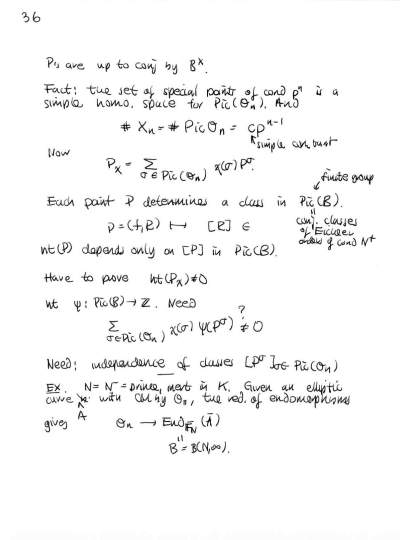 36
Pts are up to conj by B^×.
Fact: the set of special points of cond p^n is a
simple homo. space for Pic(O_n). And
# X_n = # Pic O_n = cp^{n-1}
simple constant
Now
P_χ = Σ_{σ ∈ Pic(O_n)} χ(σ) P^σ.
finite group
Each point P determines a class in Pic(B).
P = (f, R) ↦ [R] ∈
conj. classes
of Eichler
orders of cond N^+
ht(P) depends only on [P] in Pic(B).
Have to prove ht(P_χ) ≠ 0
ht ψ: Pic(B) → Z. Need
Σ_{σ∈Pic(O_n)} χ(σ) ψ(P^σ) ≠ 0
?
Need: independence of classes [P^σ]_{σ ∈ Pic(O_n)}
Ex. N = N^- = prime, inert in K. Given an elliptic
curve with CM by O_n, the red. of endomorphisms
A
gives O_n → End_{F_N}(Ā)
B = B(N,∞).